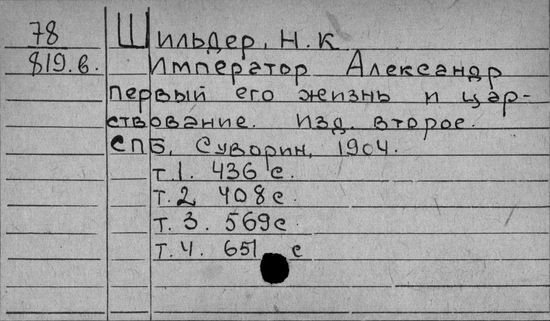 78
Шильдер, Н. К
819.в.
Император Александр
первый его жизнь и цар-
ствование. изд. второе.
СПБ, Суворин, 1904.
т.1. 436 с.
т.2 408 с
т. 3. 569 с.
т. 4. 651 с